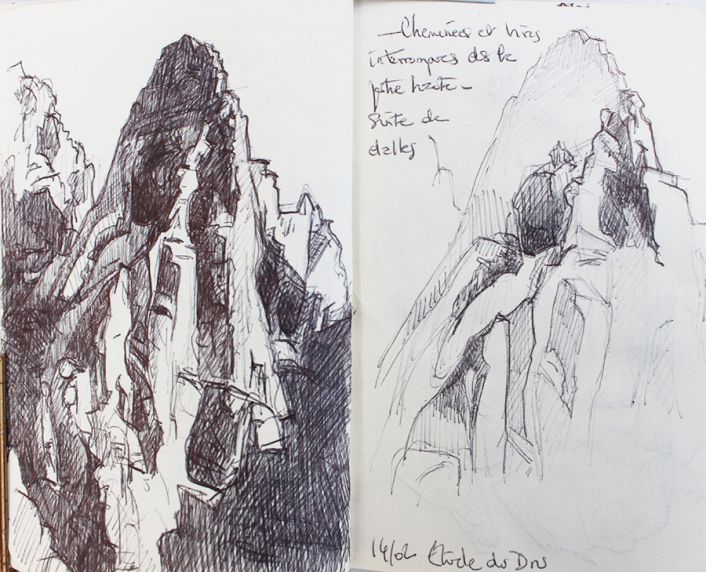 — Cheminées et vires
interrompues ds la
ptie haute –
Suite de
dalles
14/02 Etude du Dru